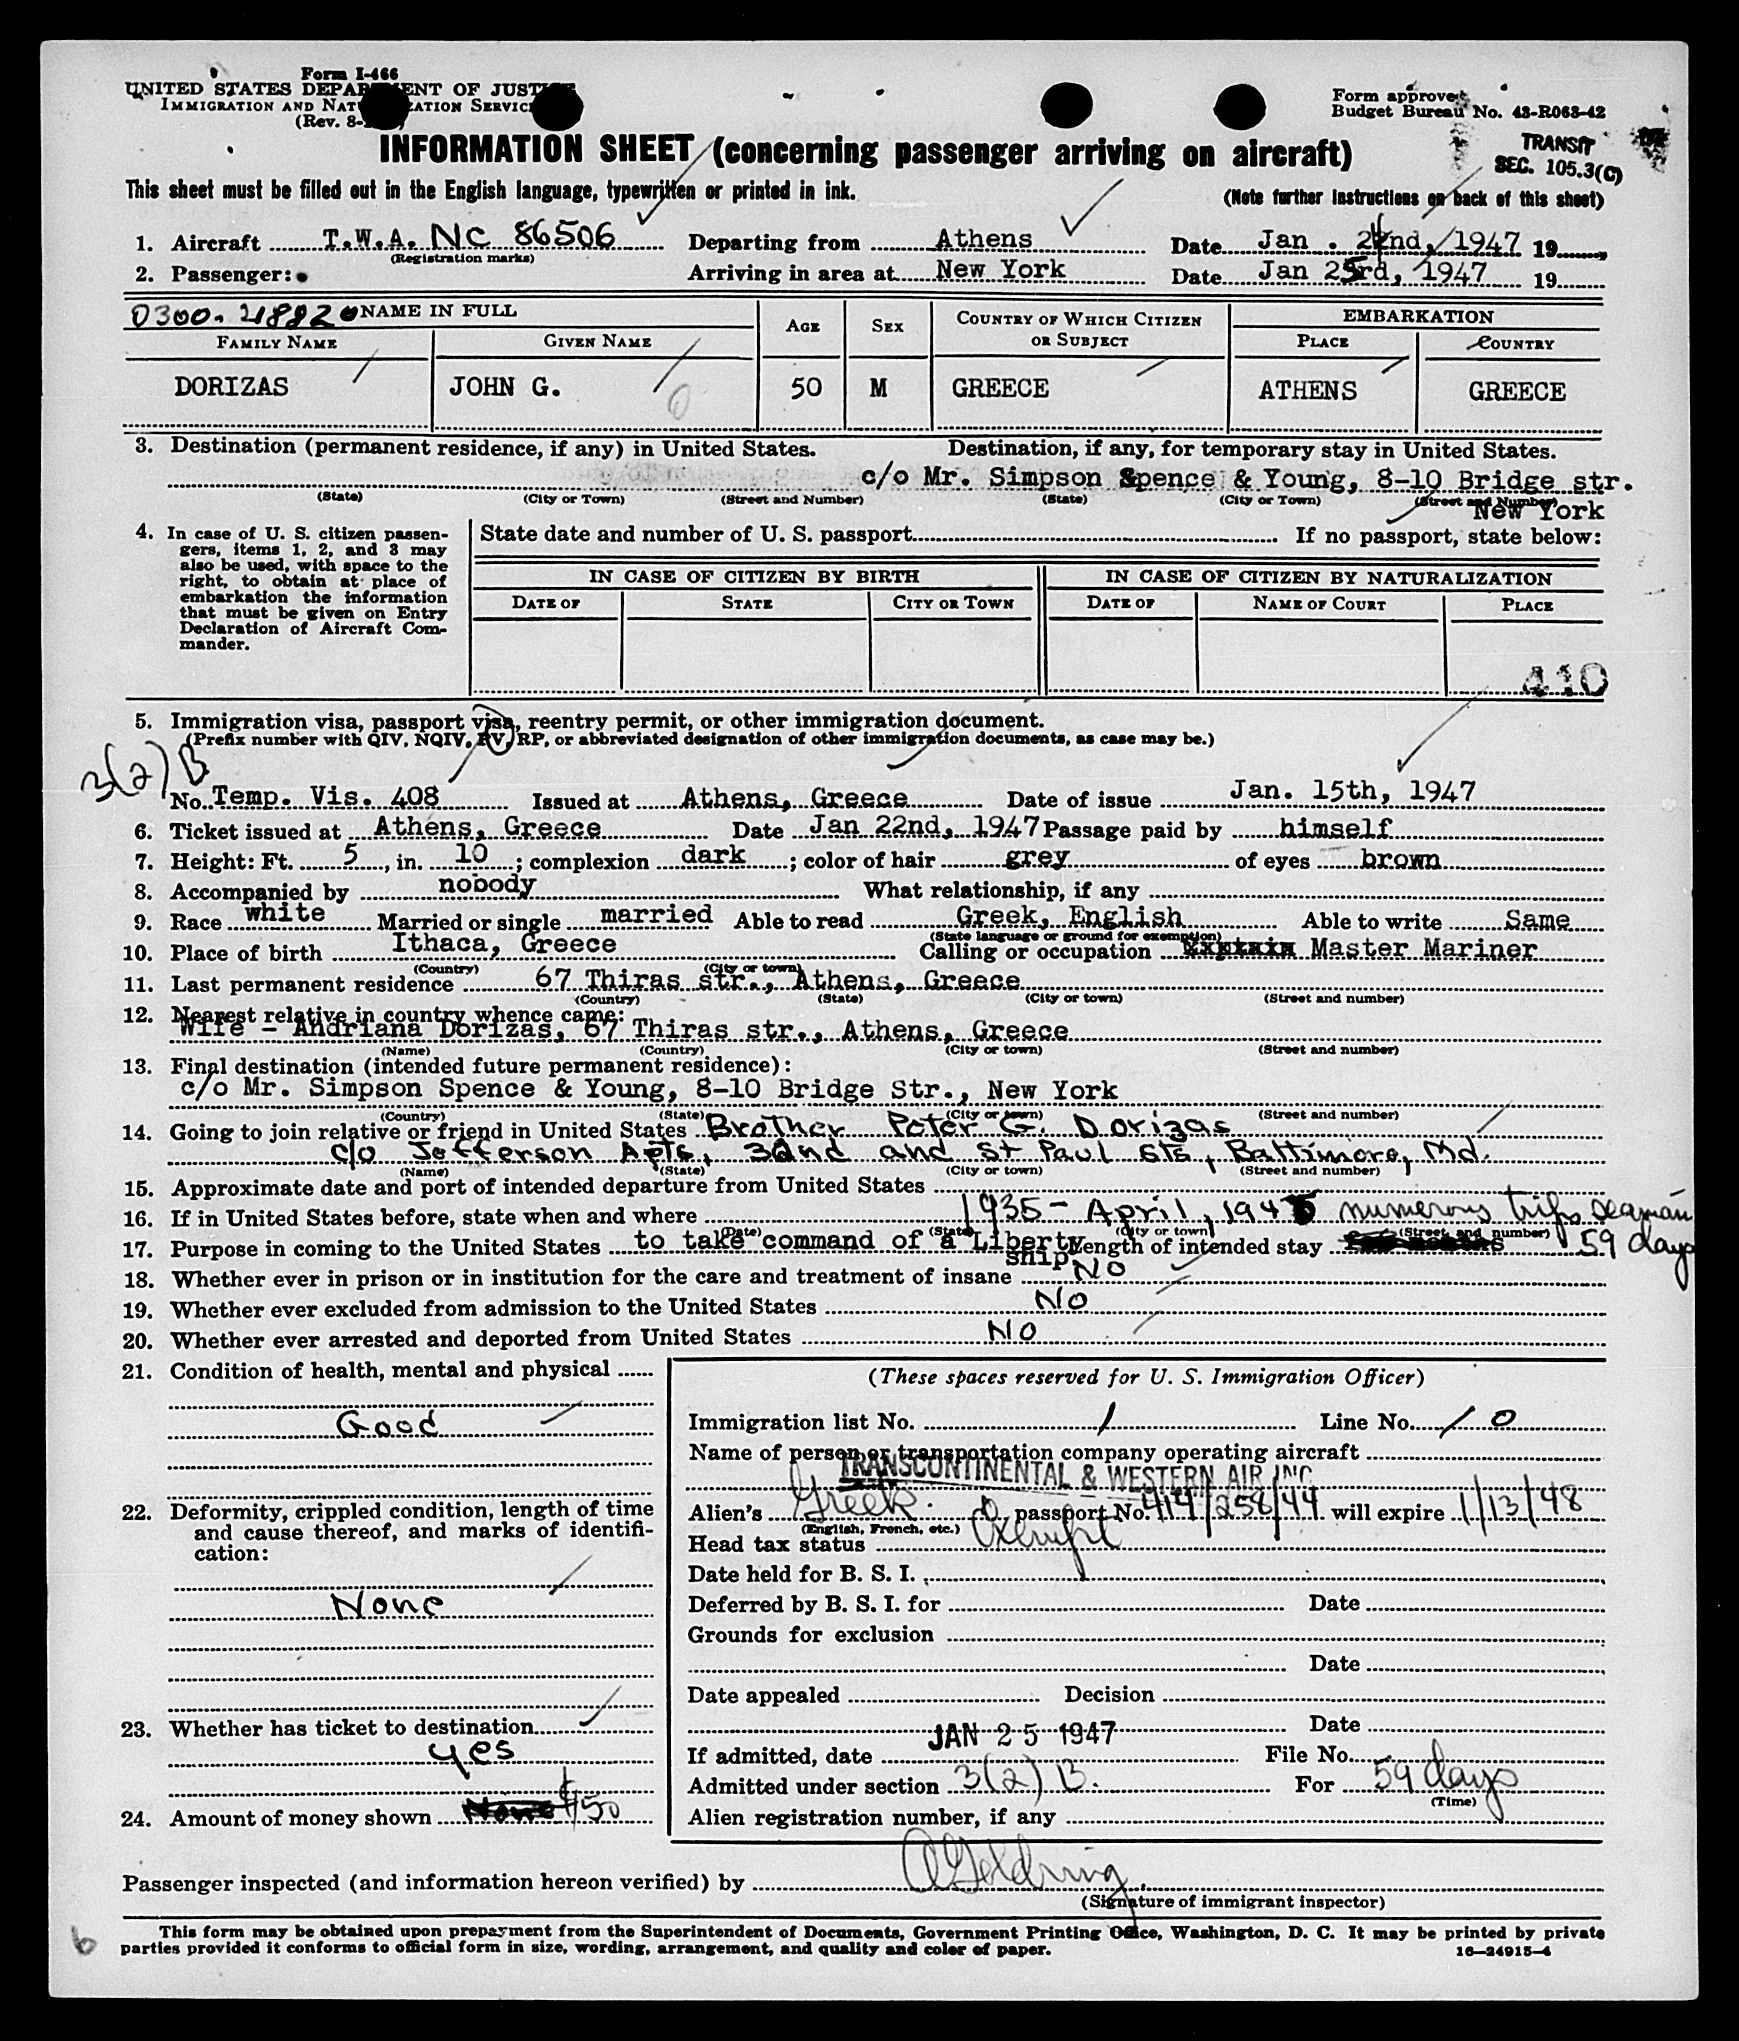 Form I-466
UNITED STATES DEPARTMENT OF JUSTICE
IMMIGRATION AND NATURALIZATION SERVICE
(Rev. 8-
Form approved
Budget Bureau No. 43-R063-42
TRANSIT
SEC. 105.3(C)
INFORMATION SHEET (concerning passenger arriving on aircraft)
This sheet must be filled out in the English language, typewritten or printed in ink.
(Note further instructions on back of this sheet)
1. Aircraft T.W.A. NC 86506 Departing from Athens Date Jan . 24nd, 1947 19
(Registration marks)
2. Passenger: Arriving in area at New York Date Jan 25rd, 1947 19
0300. 21882 NAME IN FULL AGE SEX COUNTRY OF WHICH CITIZEN OR SUBJECT EMBARKATION
FAMILY NAME GIVEN NAME PLACE COUNTRY
DORIZAS JOHN G. 50 M GREECE ATHENS GREECE
3. Destination (permanent residence, if any) in United States. Destination, if any, for temporary stay in United States.
c/o Mr. Simpson Spence & Young, 8-10 Bridge str.
(State) (City or Town) (Street and Number) (State) (City or Town) (Street and Number)
New York
4. In case of U. S. citizen passengers, items 1, 2, and 3 may also be used, with space to the right, to obtain at place of embarkation the information that must be given on Entry Declaration of Aircraft Commander.
State date and number of U. S. passport If no passport, state below:
IN CASE OF CITIZEN BY BIRTH IN CASE OF CITIZEN BY NATURALIZATION
DATE OF STATE CITY OR TOWN DATE OF NAME OF COURT PLACE
410
5. Immigration visa, passport visa, reentry permit, or other immigration document.
(Prefix number with QIV, NQIV, PV, RP, or abbreviated designation of other immigration documents, as case may be.)
3(2) B
No. Temp. Vis. 408 Issued at Athens, Greece Date of issue Jan. 15th, 1947
6. Ticket issued at Athens, Greece Date Jan 22nd, 1947 Passage paid by himself
7. Height: Ft. 5, in. 10; complexion dark; color of hair grey of eyes brown
8. Accompanied by nobody What relationship, if any
9. Race white Married or single married Able to read Greek, English Able to write Same
(State language or ground for exemption)
10. Place of birth Ithaca, Greece Calling or occupation Master Mariner
(Country) (City or town)
11. Last permanent residence 67 Thiras str., Athens, Greece
(Country) (State) (City or town) (Street and number)
12. Nearest relative in country whence came:
Wife - Andriana Dorizas, 67 Thiras str., Athens, Greece
(Name) (Country) (City or town) (Street and number)
13. Final destination (intended future permanent residence):
c/o Mr. Simpson Spence & Young, 8-10 Bridge Str., New York
(Country) (State) (City or town) (Street and number)
14. Going to join relative or friend in United States Brother Peter G. Dorizas
c/o Jefferson Apts, 32nd and St Paul sts, Baltimore, Md.
(Name) (State) (City or town) (Street and number)
15. Approximate date and port of intended departure from United States
16. If in United States before, state when and where 1935 - April, 1945 numerous trips seaman
(Date) (State) (City or town) (Street and number)
17. Purpose in coming to the United States to take command of a Liberty ship. Length of intended stay 59 days
18. Whether ever in prison or in institution for the care and treatment of insane No
19. Whether ever excluded from admission to the United States No
20. Whether ever arrested and deported from United States No
21. Condition of health, mental and physical
Good
22. Deformity, crippled condition, length of time and cause thereof, and marks of identification:
None
23. Whether has ticket to destination
yes
24. Amount of money shown None $150
(These spaces reserved for U. S. Immigration Officer)
Immigration list No. 1 Line No. 10
Name of person or transportation company operating aircraft
TRANSCONTINENTAL & WESTERN AIR INC
Alien's Greek passport No. 414/258/44 will expire 1/13/48
(English, French, etc.)
Head tax status Exempt
Date held for B. S. I.
Deferred by B. S. I. for Date
Grounds for exclusion
Date
Date appealed Decision
Date
If admitted, date JAN 25 1947 File No.
Admitted under section 3(2) B. For 59 days
(Time)
Alien registration number, if any
Passenger inspected (and information hereon verified) by A Goldring
(Signature of immigrant inspector)
This form may be obtained upon prepayment from the Superintendent of Documents, Government Printing Office, Washington, D. C. It may be printed by private
parties provided it conforms to official form in size, wording, arrangement, and quality and color of paper.
16—24915-4
6